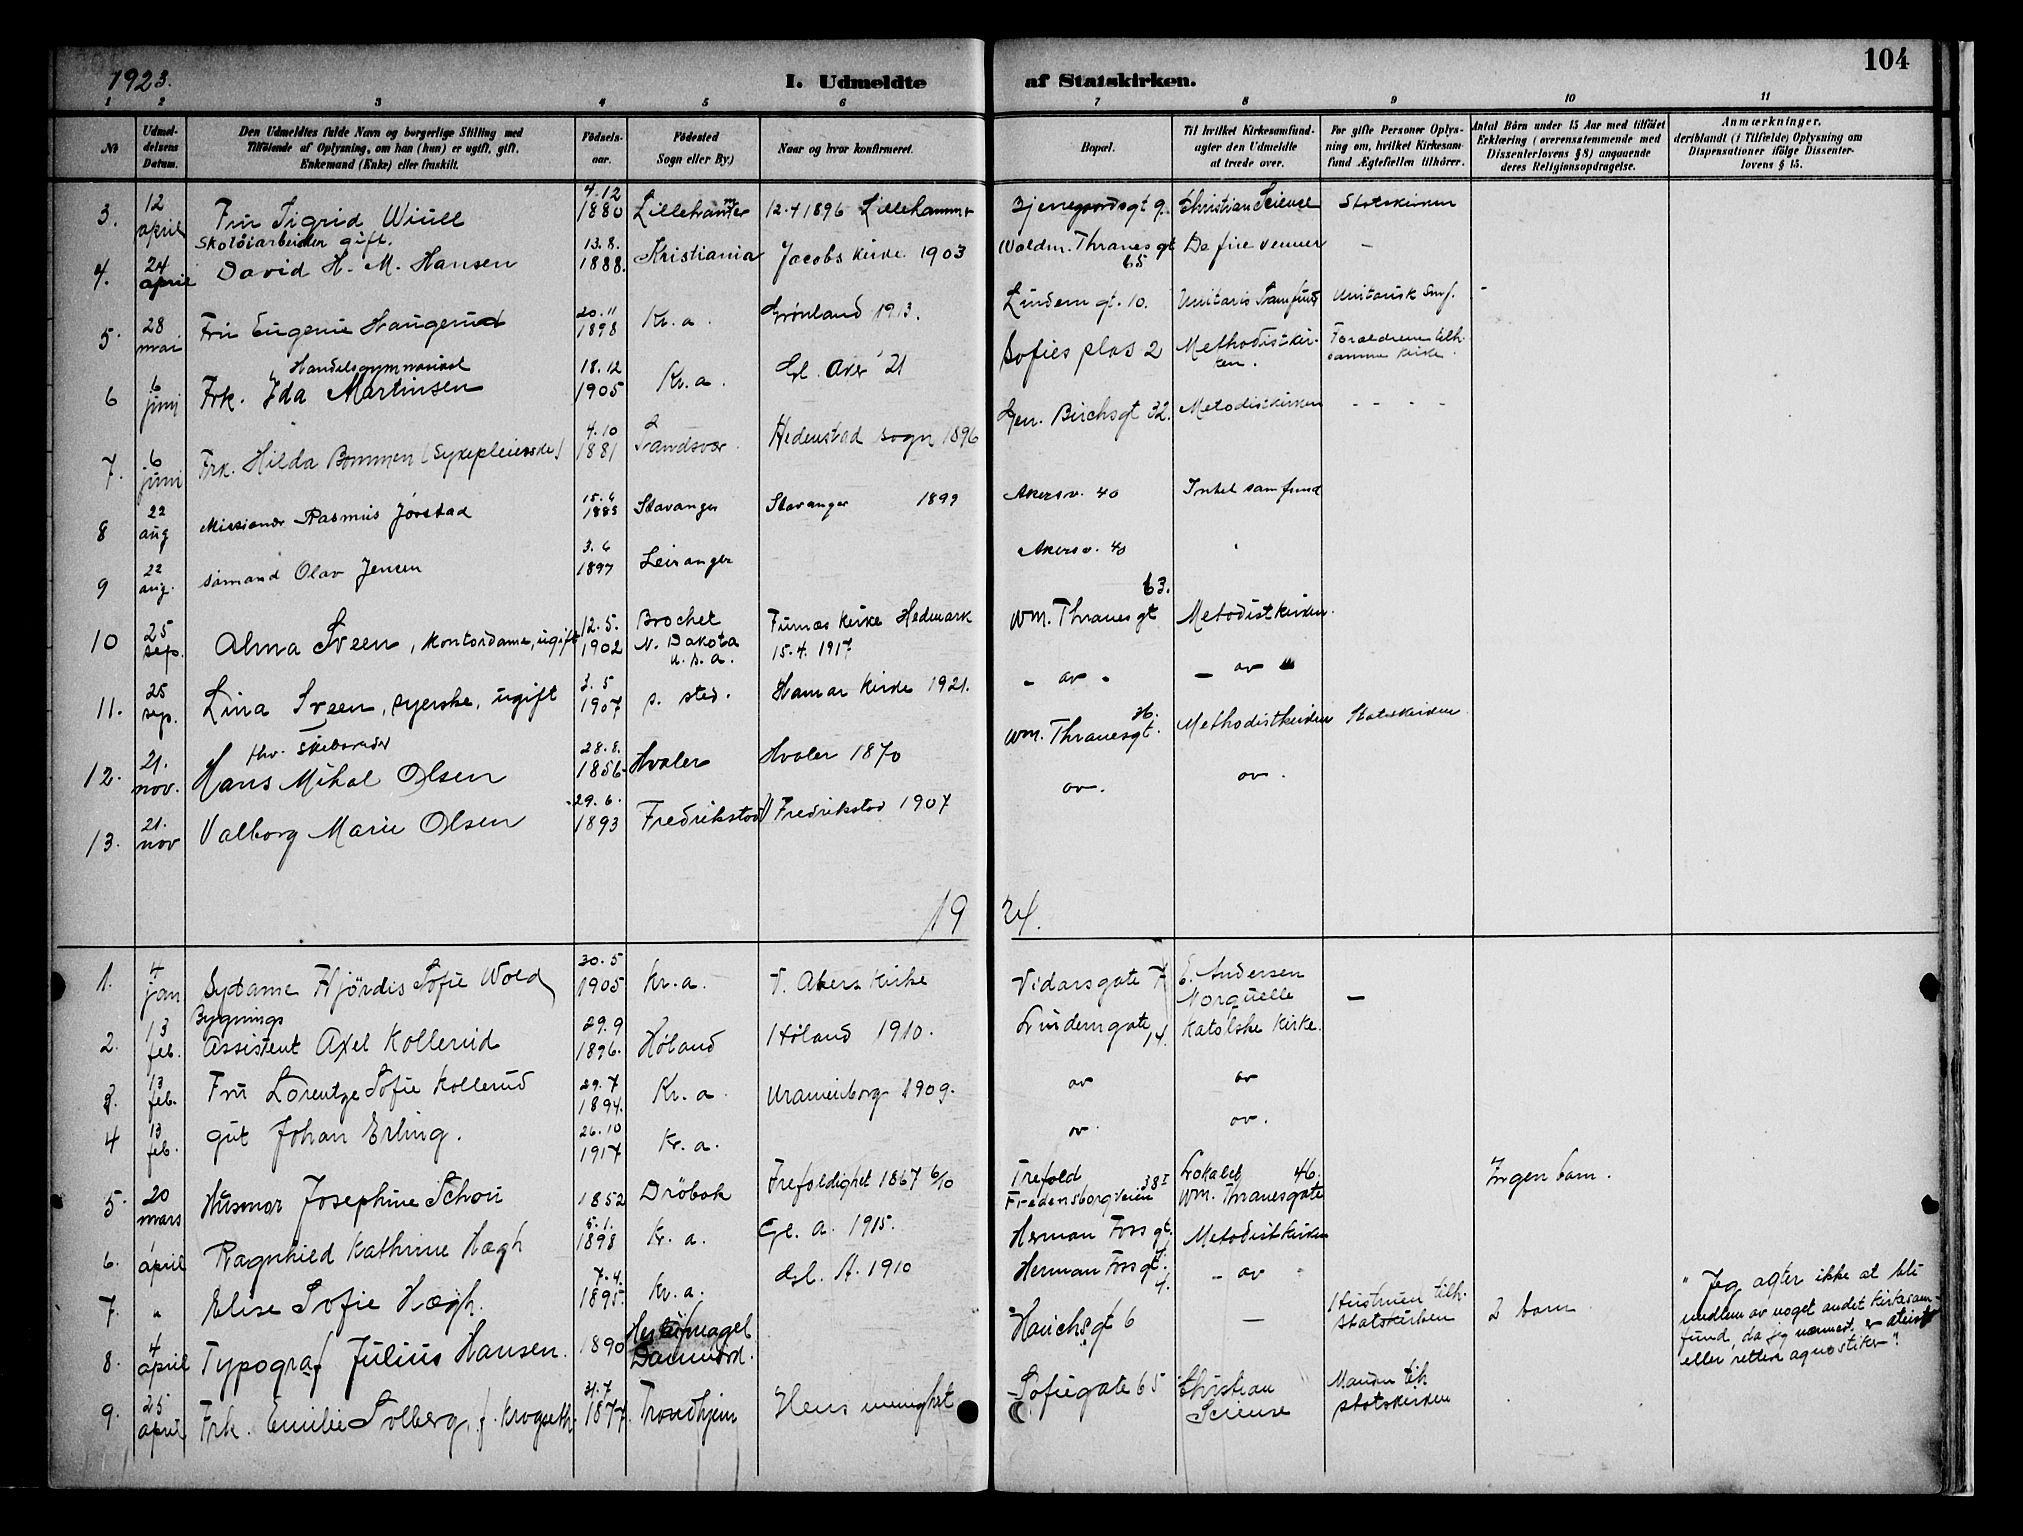 104
1923.
I. Udmeldte af Statskirken.
1 2 3 4 5 6 7 8 9 10 11
No
Udmel-
delsens
Datum.
Den Udmeldtes fulde Navn og borgerlige Stilling med
Tilföiende af Oplysning, om han (hun) er ugift, gift,
Enkemand (Enke) eller fraskilt.
Födsels-
aar.
Födested
Sogn eller By)
Naar og hvor konfirmeret.
Bopæl.
Til hvilket Kirkesamfund
agter den Udmeldte
at træde over.
For gifte Personer Oplys-
ning om, hvilket Kirkesam-
fund Ægtefællen tilhörer.
Antal Börn under 15 Aar med tilföiet
Erklæring (overensstemmende med
Dissenterlovens § 8) angaaende
deres Religionsopdragelse.
Anmærkninger,
deriblandt (i Tilfælde) Oplysning om
Dispensationer ifölge Dissenter-
lovens § 15.
3. 12 april Fru Sigrid Wiull 4.12 1880 Lillehammer 12.4 1896 Lillehammer Bjerregaardsgt 9 Christian Science Statskirken
Skotöiarbeider gift.
4. 24 april David H. M. Hansen 13.8. 1888. Kristiania Jacobs kirke 1903 Waldm. Thranes gt 65 De fire venner –
5. 28 mai Fru Eugenie Haugerud 20.11 1898 Kr.a. Grønland 1913. Lindem gt. 10. Unitaris Samfund Unitarisk Smf. -
Handelsgymnasiast
6 6 juni Frk. Ida Martinsen 18.12 1905 Kr.a. Gl. Aker '21 Sofies plas 2 Methodistkir-
ken. Forældrene tilh.
samme kirke.
7. 6 juni Frk. Hilda Bommen (Sykepleierske) 4.10 1881 Sandsvær. Hedenstad sogn 1896 Gen. Birchsgt 32. Metodistkirken - - - -
8 22 aug Missionær Rasmus Jørstad 15.6 1885 Stavanger Stavanger 1899 Akersv. 40 samfund
9 22 aug. sømand Olav Jensen 3.6 1897 Leiranger Akersv. 40
10 25 sep. Alma Sveen, kontordame, ugift 12.5. 1902 Brochet
N. Dakota
U.S.A. Furnæs kirke Hedmark
15.4. 1917 63.
Wm. Thranes gt Metodistkirken.
11. 25 sep. Lina Sveen, syerske, ugift 3.5 1907 s. sted. Hamar kirke 1921. - av - – av "
12. 21. nov. Hans Mikal Olsen 28.8. 1856. Hvaler Hvaler 1870 Wm. Thranesgt. Methodistkirken Statskirken
13. 21. nov Valborg Marie Olsen 29.6. 1893 Fredrikstad Fredrikstad 1907 av. av.
1924.
1. 4 jan Sydame Hjördis Sofie Wold 30.5 1905 Kr.a. V. Akers kirke Vidarsgate 7 E. Andersen
Norquelle –
Bygnings
2. 13 feb. Assistent Axel Kollerud 29.9 1896. Høland Høland 1910. Lindemgate 14. Katolske kirke.
3. 13 feb. Fru Lorentze Sofie Kollerud 29.7 1894. Kr.a. Uranienborg 1909. av av
4 13 feb. gut Johan Erling. 26.10 1917 Kr.a. av. av.
5. 20 mars Husmor Josephine Schou 1852 Dröbak Trefoldighet 1867 6/10 Trefold
Fredensborgveien 38 I Lokalet 46.
Wm. Thranesgate Ingen barn.
6. april Ragnhild Kathrine Høgh 5.1. 1898 Kr.a. Gl. A. 1915. Herman Foss gt. Metodistkirken
7. " Elise Sofie Høgh. 7.4. 1895. Kr.a. Gl. A. 1910 Herman Foss gt. 4. – av "
8. 4 april Typograf Julius Hansen. 1890
Danmark. Hauchsgt 6 – Hustruen tilh.
statskirken 2 barn " Jeg agter ikke at bli
medlem av noget andet kirkesam-
fund, da jeg nærmest er ateist
eller rettere agnostiker".
9. 25 april Frk. Emilie Solberg, f. Krogseth. 31.7 1877. Trondhjem menighet Sofiegate 65 Christian
Sciense Manden tilh
statskirken